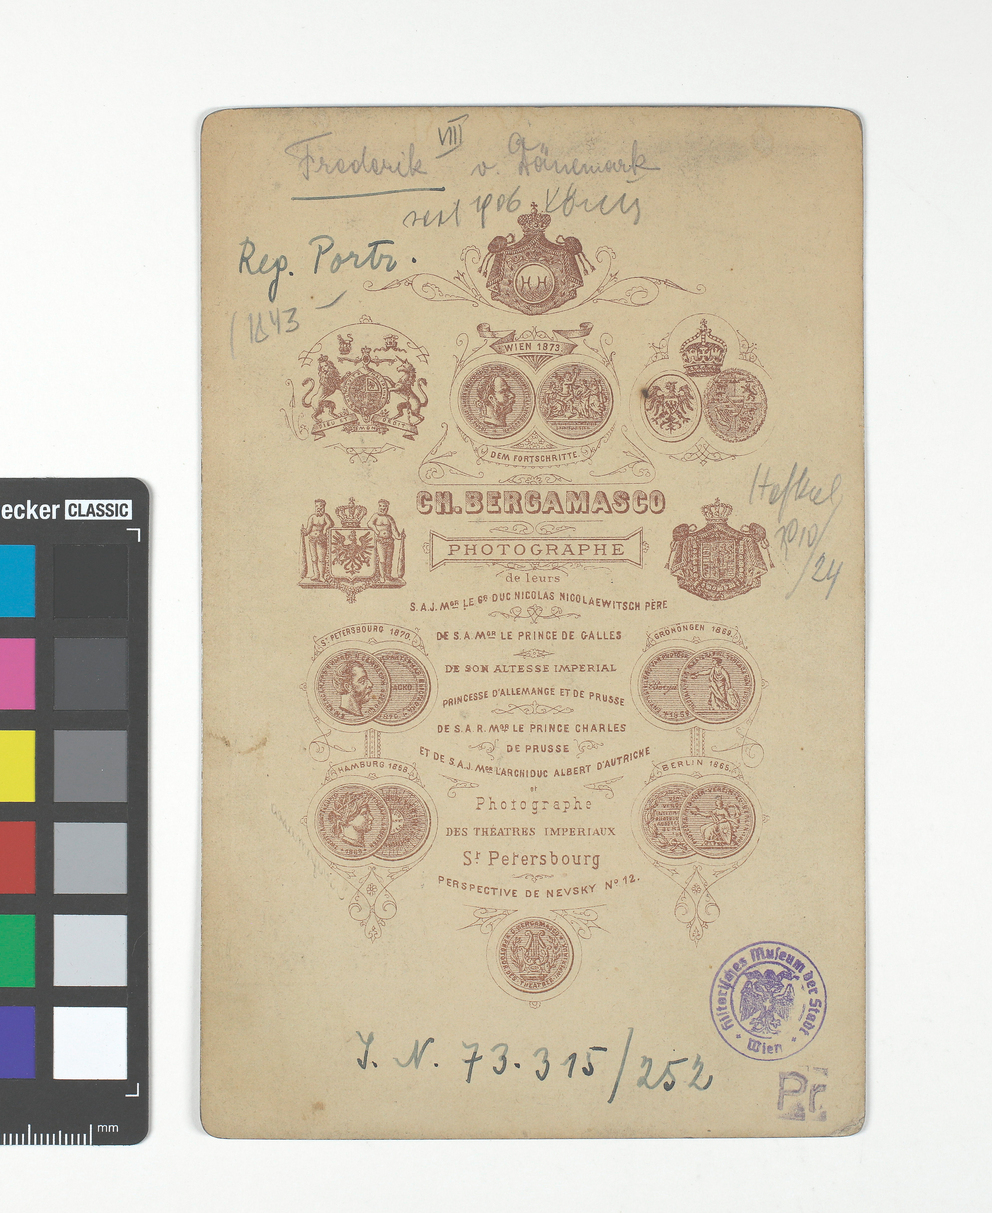 Frederik VIII v. Dänemark
seit 1906 König
Reg. Portr.
(1843 –
WIEN 1873.
DIEU ET MON DROIT
DEM FORTSCHRITTE.
CH. BERGAMASCO
PHOTOGRAPHE
de leurs
S.A.J. Mgr LE Gd DUC NICOLAS NICOLAEWITSCH PÈRE
DE S.A. Mgr LE PRINCE DE GALLES
DE SON ALTESSE IMPERIAL
PRINCESSE D'ALLEMANGE ET DE PRUSSE
DE S.A.R. Mgr LE PRINCE CHARLES
DE PRUSSE
ET DE S.A.J. Mgr L'ARCHIDUC ALBERT D'AUTRICHE
et
Photographe
DES THÉATRES IMPERIAUX
St Petersbourg
PERSPECTIVE DE NEVSKY No 12.
St PETERSBOURG 1870.
GRONONGEN 1869.
HAMBURG 1868.
BERLIN 1865.
1910/24
Historisches Museum der Stadt
Wien
J. N. 73.315/252
Pr
ecker CLASSIC
mm